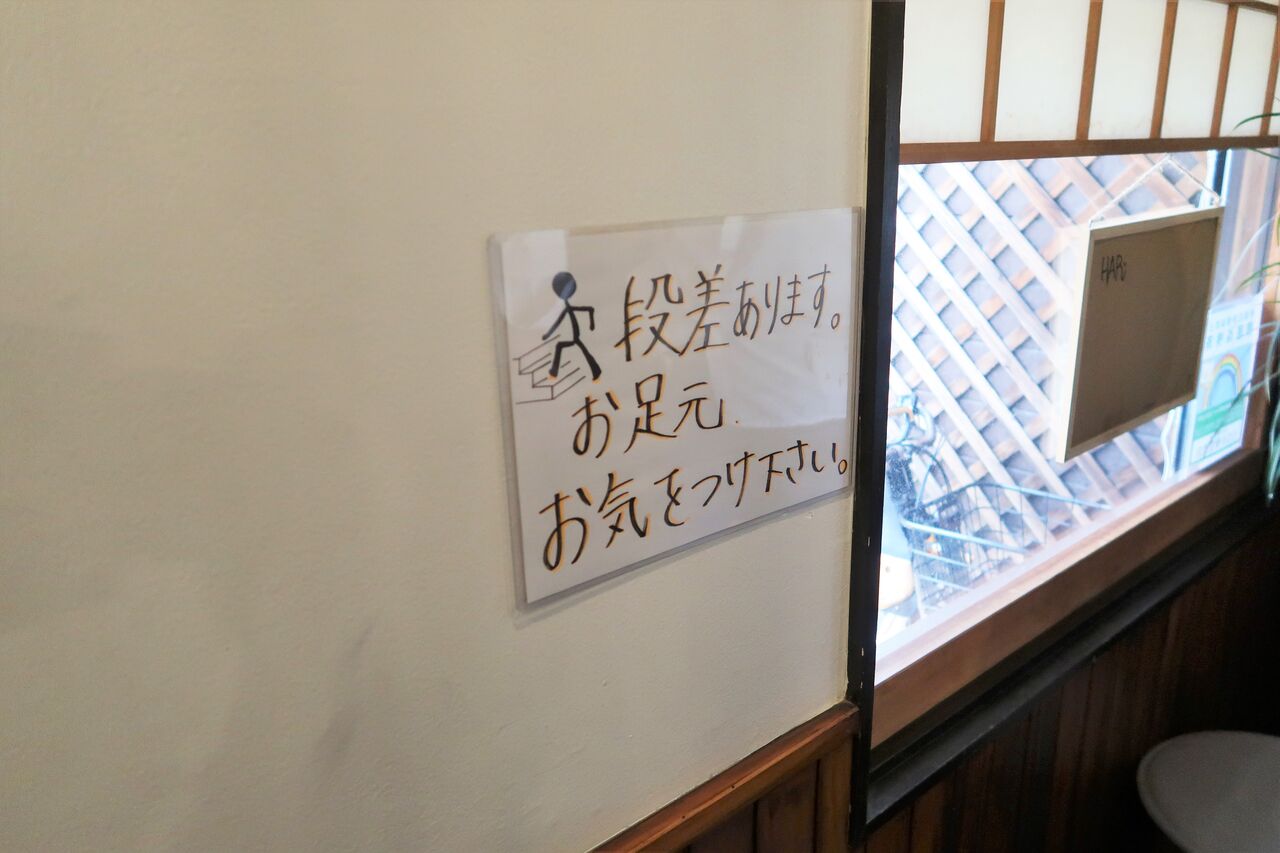 段差あります。
お足元
お気をつけ下さい。